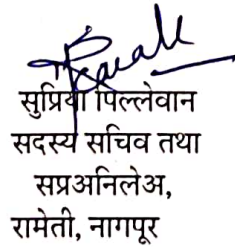 सुप्रिया पिल्लेवान
सदस्य सचिव तथा
सप्रअनिलेअ,
रामेती, नागपूर